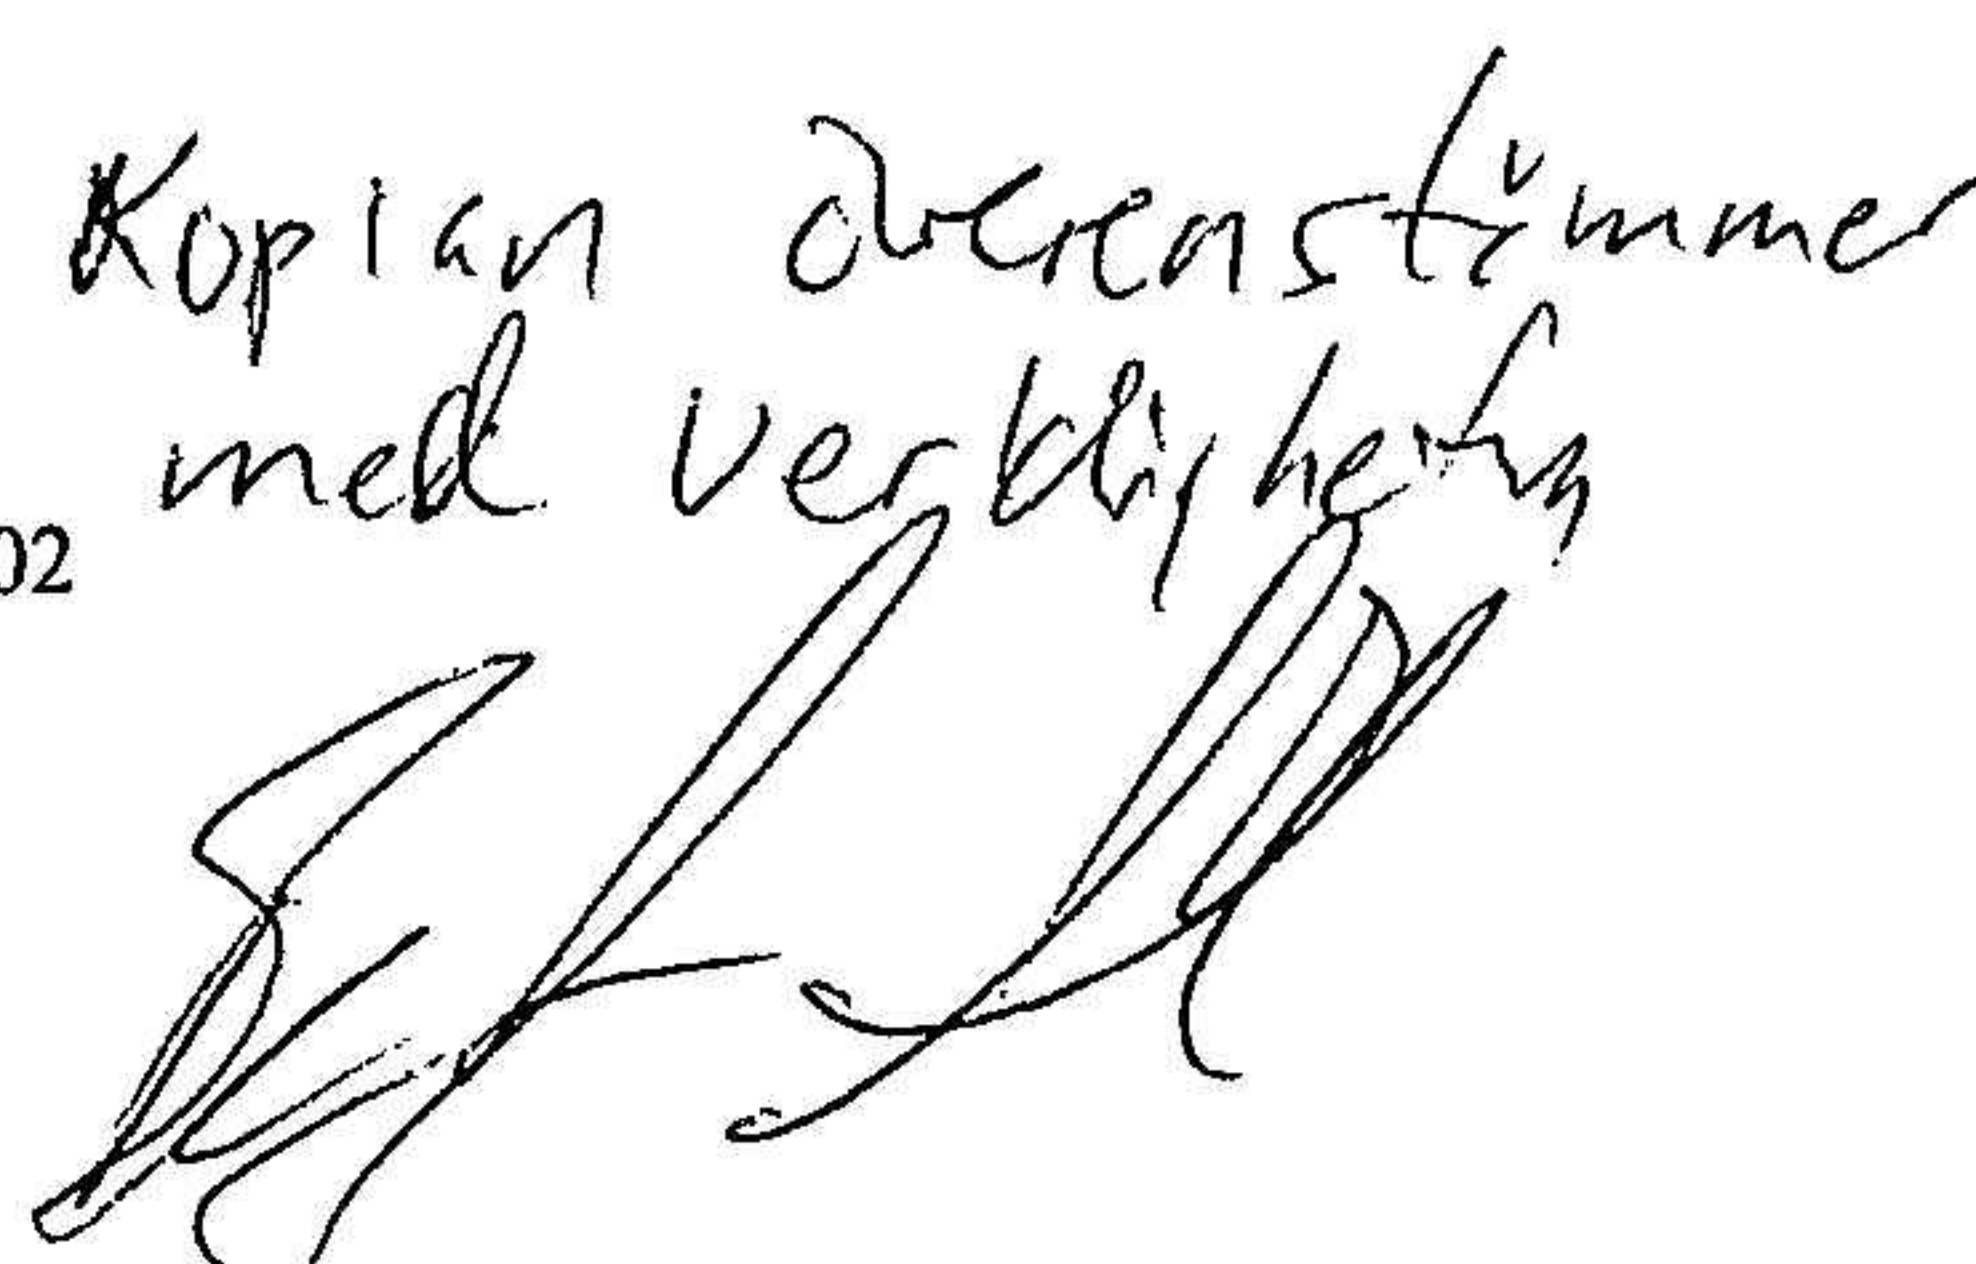 Kopian överenstämmer
med verkligheten
02